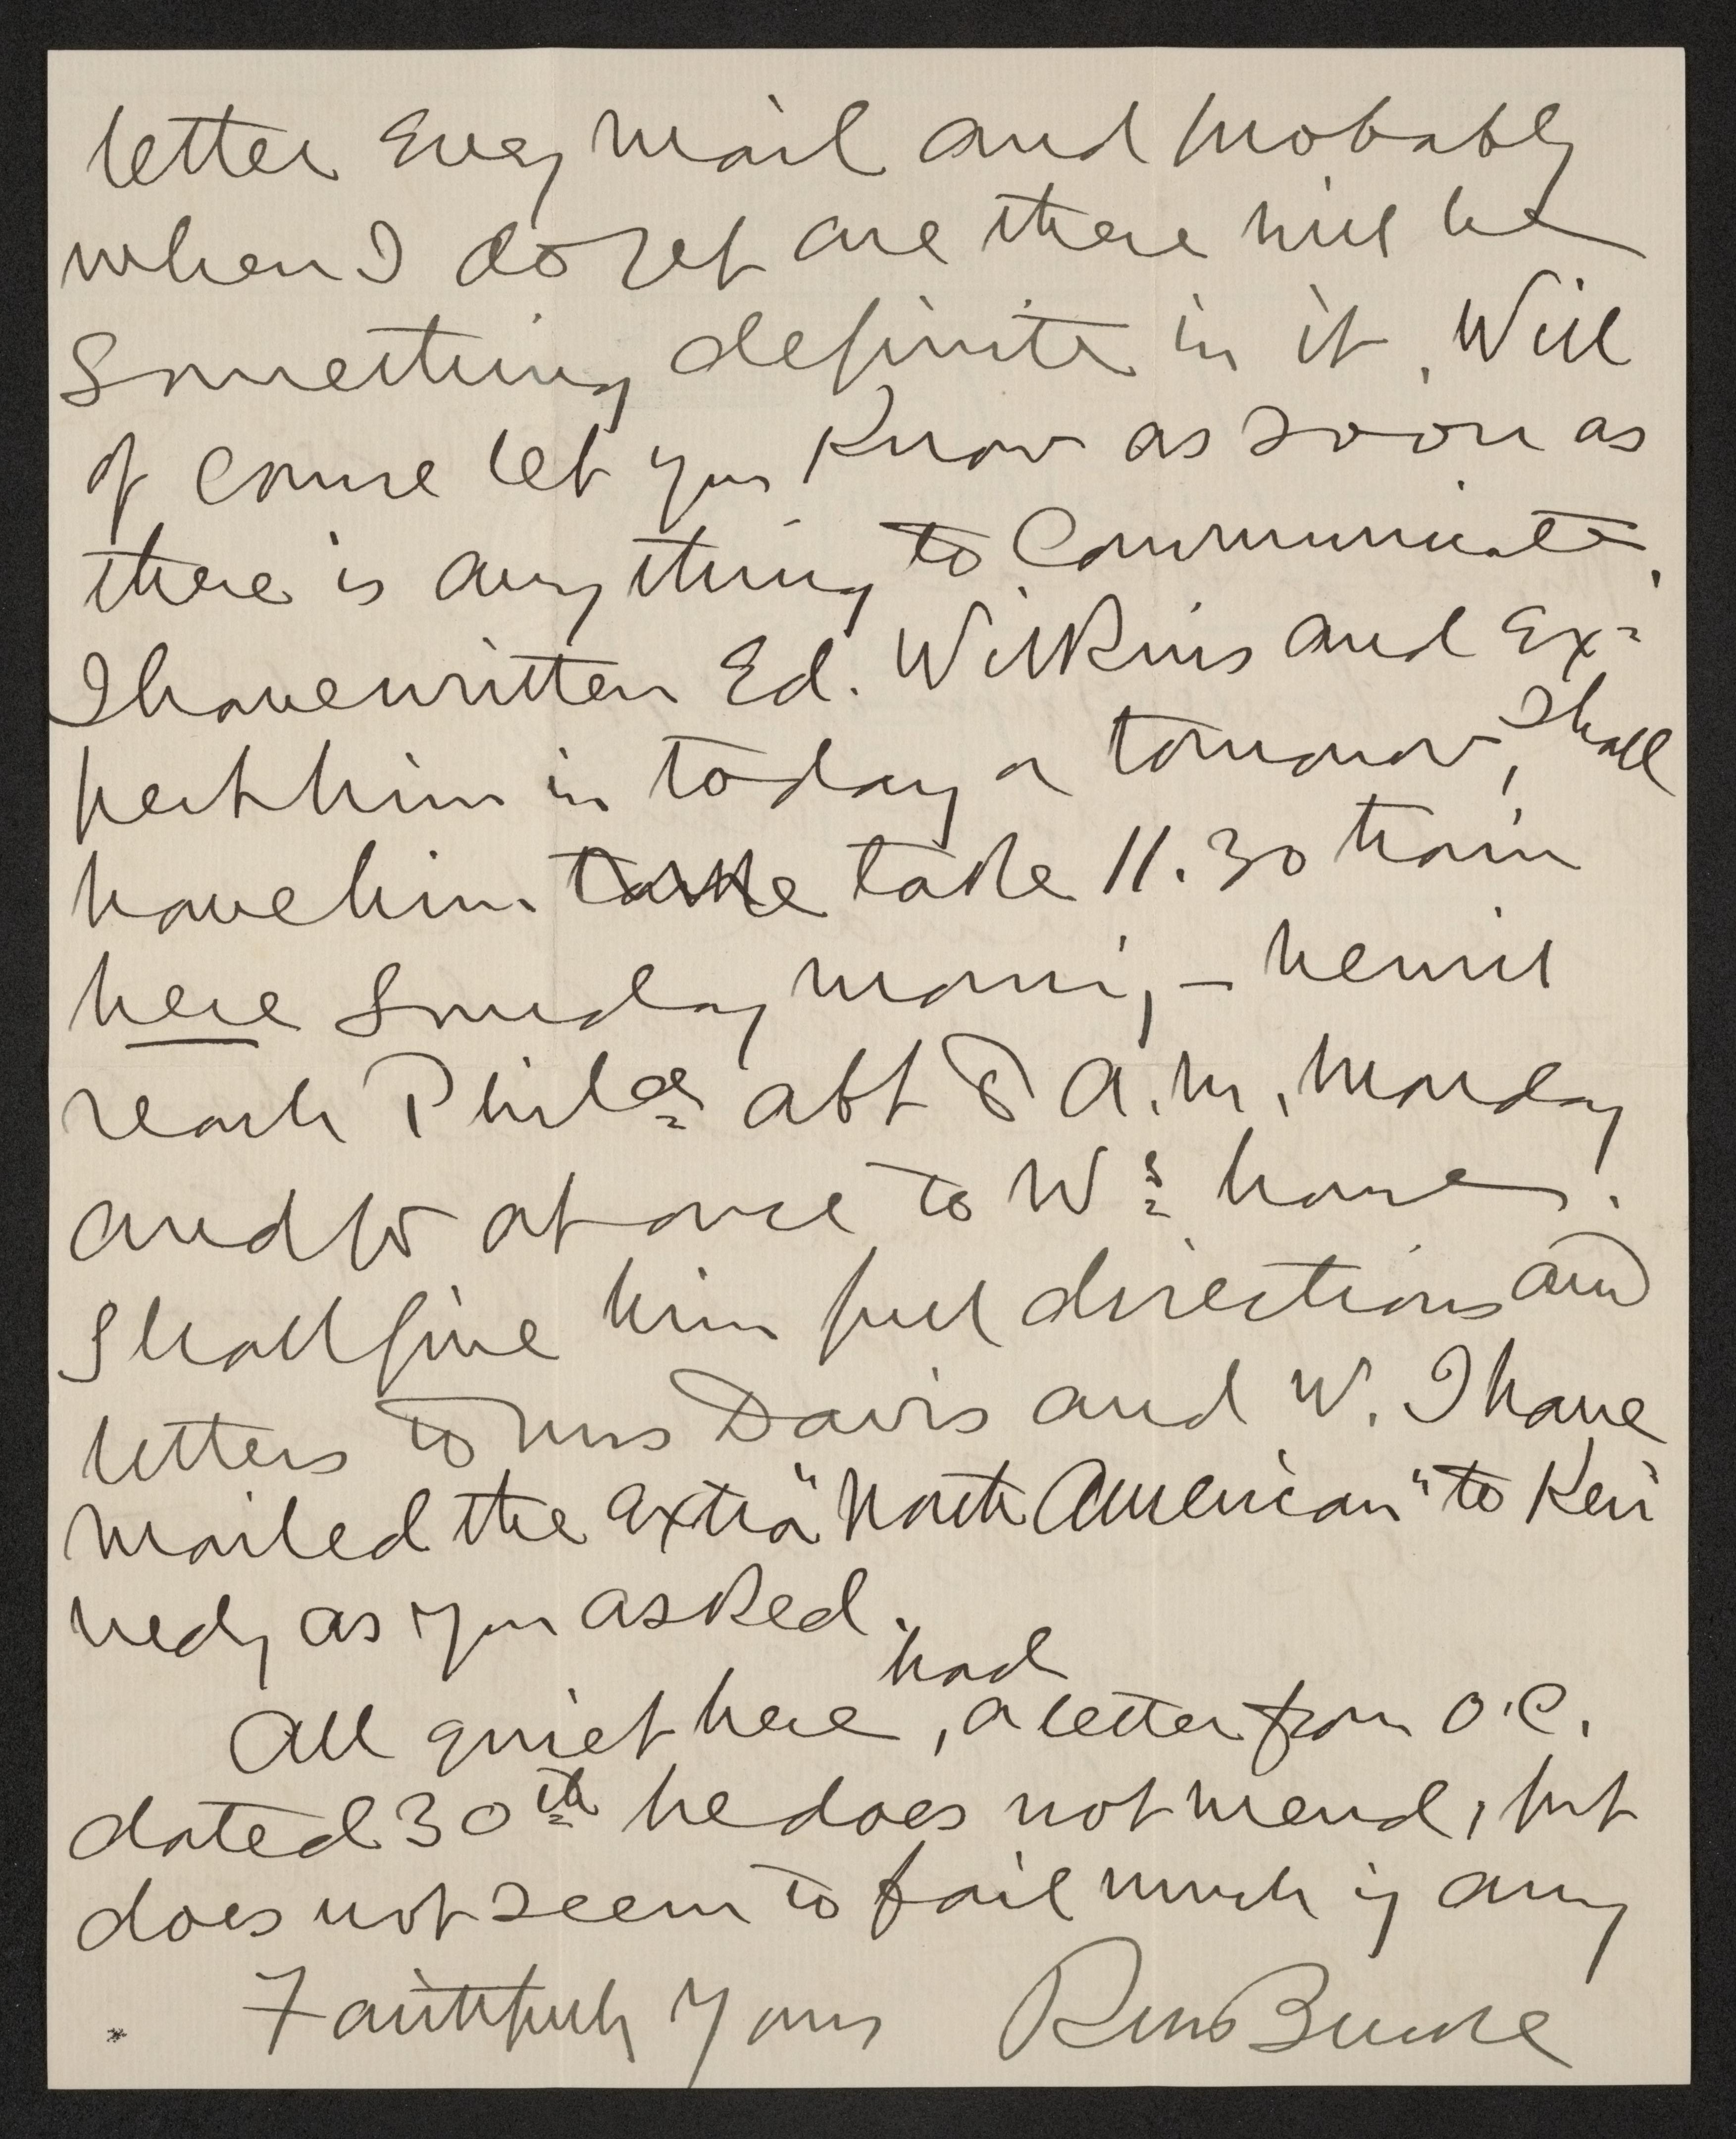 letter every mail and probably
when I do get one there will be
something definite in it. Will
of course let you know as soon as
there is any thing to communicate.
I have written Ed. Wilkins and ex=
pect him in today or tomorrow, shall
have him take take 11.30 train
here Sunday morning, – he will
reach Phila abt 8 a.m. Monday
and go at once to W's house.
Shall give him full directions and
letters to Mrs Davis and W. I have
mailed the extra "North American" to Ken
nedy as you asked.
had
All quiet here, a letter from O'C.
dated 30th he does not mend, but
does not seem to fail much if any
Faithfully Yours RM Bucke